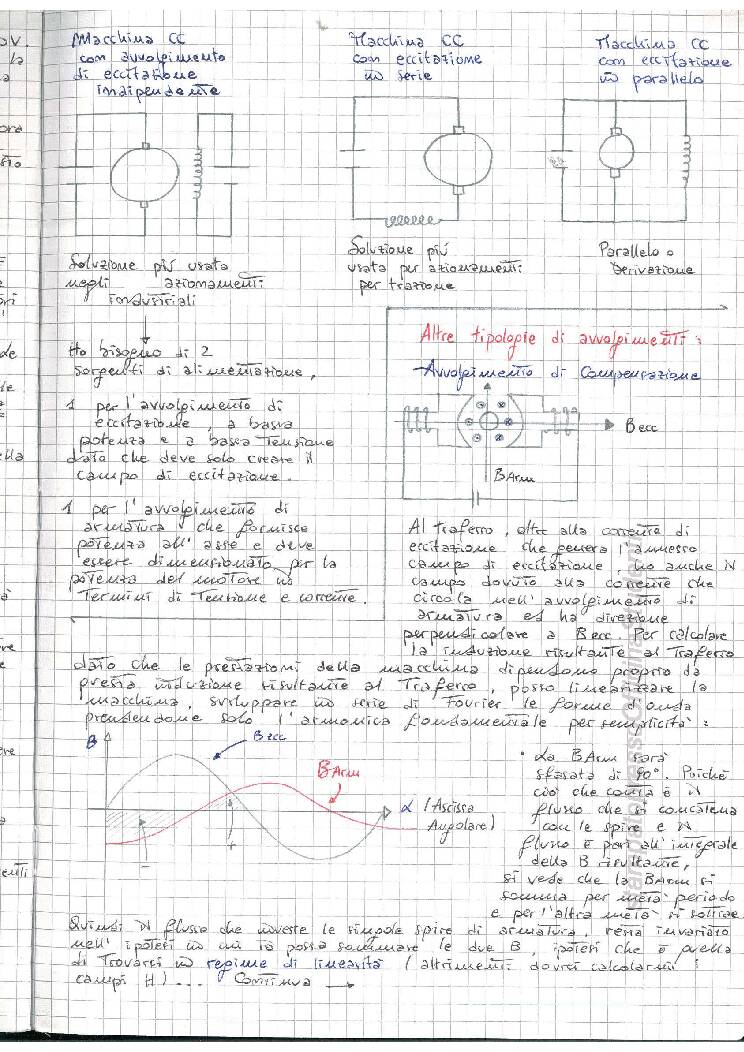 Macchina CC
con avvolgimento
di eccitazione
indipendente
Macchina CC
con eccitazione
in serie
Macchina CC
con eccitazione
in parallelo
Soluzione più usata
negli azionamenti
industriali
Soluzione più
usata per azionamenti
per trazione
Parallelo o
Derivazione
Ho bisogno di 2
sorgenti di alimentazione,
1 per l'avvolgimento di
eccitazione, a bassa
potenza e a bassa tensione
dato che deve solo creare il
campo di eccitazione.
1 per l'avvolgimento di
armatura che fornisce
potenza all'asse e deve
essere dimensionato per la
potenza del motore in
Termini di Tensione e corrente.
Altre tipologie di avvolgimenti:
- Avvolgimento di Compensazione
B ecc
B Arm
Al traferro, oltre alla corrente di
eccitazione che genera l'annesso
campo di eccitazione, ho anche il
campo dovuto alla corrente che
circola nell'avvolgimento di
armatura ed ha direzione
perpendicolare a B ecc. Per calcolare
la induzione risultante al Traferro
dato che le prestazioni della macchina dipendono proprio da
questa induzione risultante al Traferro, posso linearizzare la
macchina, sviluppare in serie di Fourier le forme d'onda
prendendone solo l'armonica fondamentale per semplicità:
B
B ecc
B Arm
α (Ascissa
Angolare)
-
+
• La B Arm sarà
sfasata di 90°. Poichè
ciò che conta è il
flusso che si concatena
con le spire e il
flusso è pari all'integrale
della B risultante,
si vede che la B Arm si
somma per metà periodo
e per l'altra metà si sottrae
Quindi il flusso che investe le singole spire di armatura, resta invariato
nell'ipotesi in cui io possa sommare le due B, ipotesi che è quella
di trovarci in regime di linearità (altrimenti dovrei calcolarmi i
campi H)... Continua →